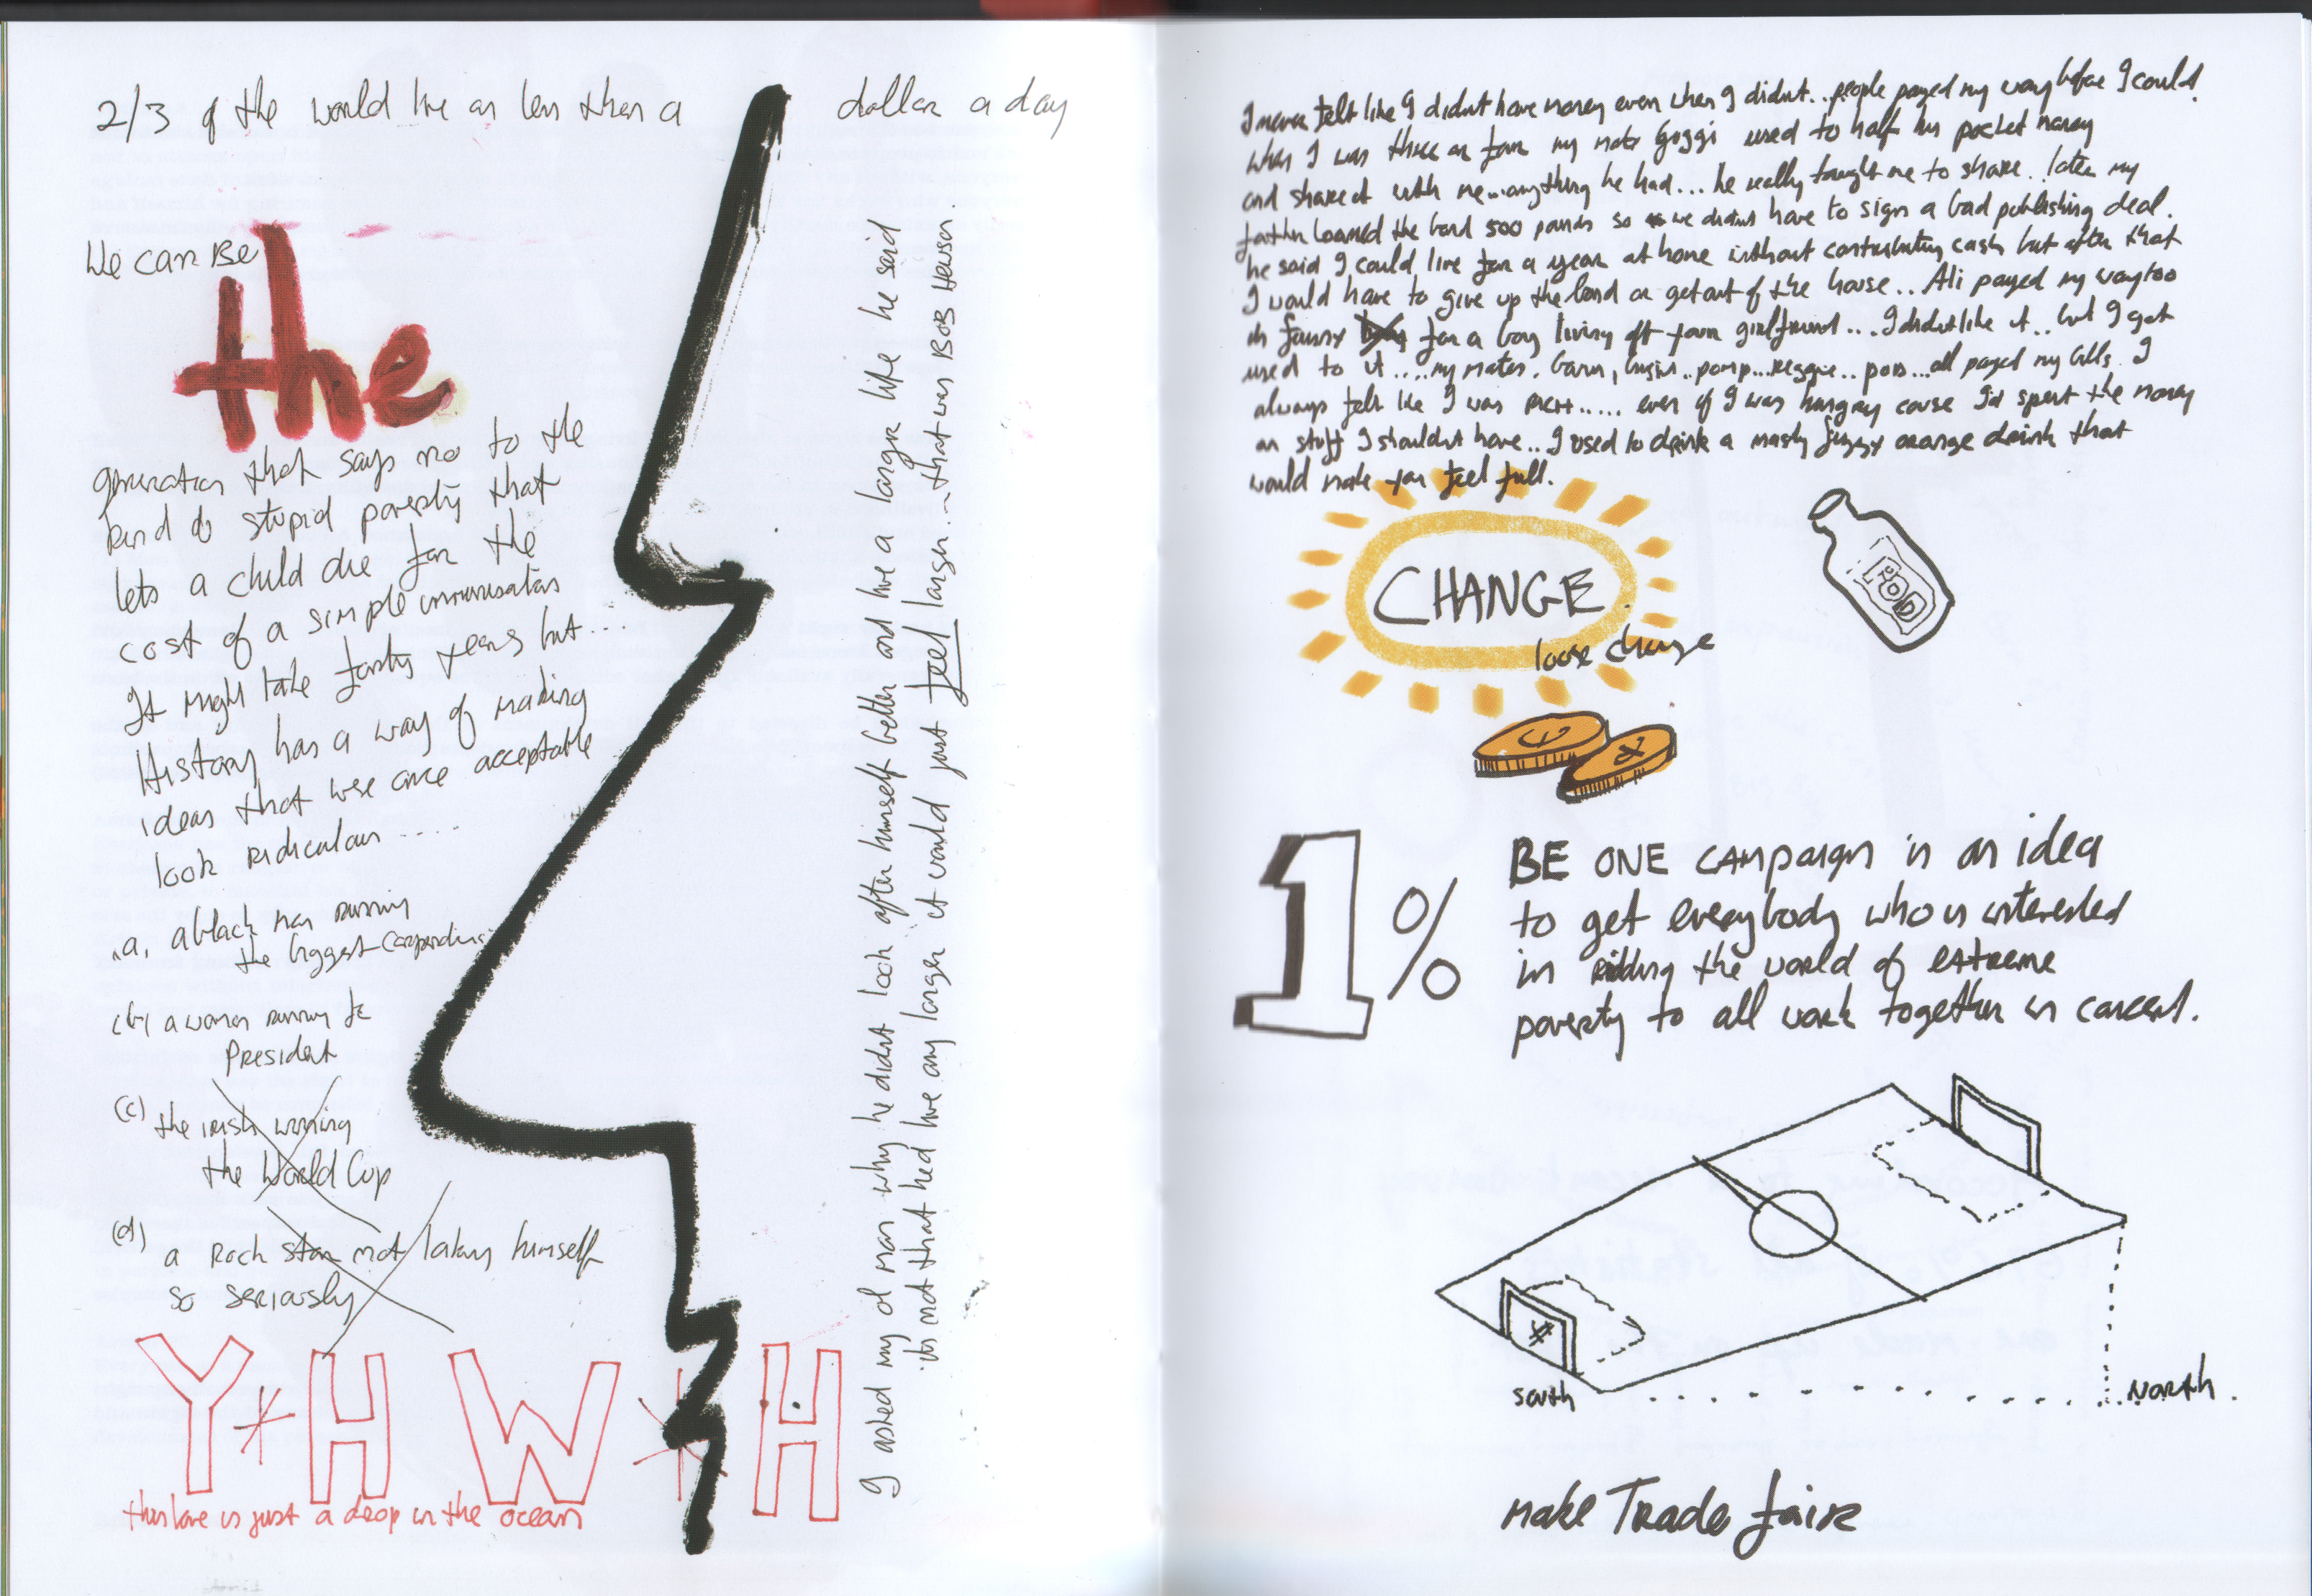 2/3 of the world live on less than a dollar a day
We can BE
the
generation that says no to the
kind of stupid poverty that
lets a child die for the
cost of a simple immunisation
It might take forty years but...
History has a way of making
ideas that were once acceptable
look ridiculous .....
(a) a black man running
the biggest corporation
(b) a woman running for
President
(c) the irish winning
the World Cup
(d) a Rock star not taking himself
so seriously
Y*HW*H
this love is just a drop in the ocean
I asked my ol man why he didnt look after himself better and live a longer life he said
its not that hed live any longer it would just feel longer...that was BOB Hewson
I never felt like I didnt have money even when I didnt...people payed my way before I could.
When I was three or four my mate Guggi used to half his pocket money
and share it with me...anything he had... he really taught me to share. later my
father loaned the band 500 pounds so we didnt have to sign a bad publishing deal.
he said I could live for a year at home without contributing cash but after that
I would have to give up the band or get out of the house.. Ali payed my way too
its funny for a boy living off your girlfriend.... I didnt like it.. but I got
used to it.... my mates, Gavin, .. pomp...Reggie.. pod...all payed my bills. I
always felt like I was rich..... even if I was hungry cause Id spent the money
on stuff I shouldnt have.. I used to drink a nasty fizzy orange drink that
would make you feel full.
CHANGE
loose change
POD
1%
BE ONE campaign is an idea
to get everybody who is interested
in ridding the world of extreme
poverty to all work together in concert.
South
North.
Make Trade fair